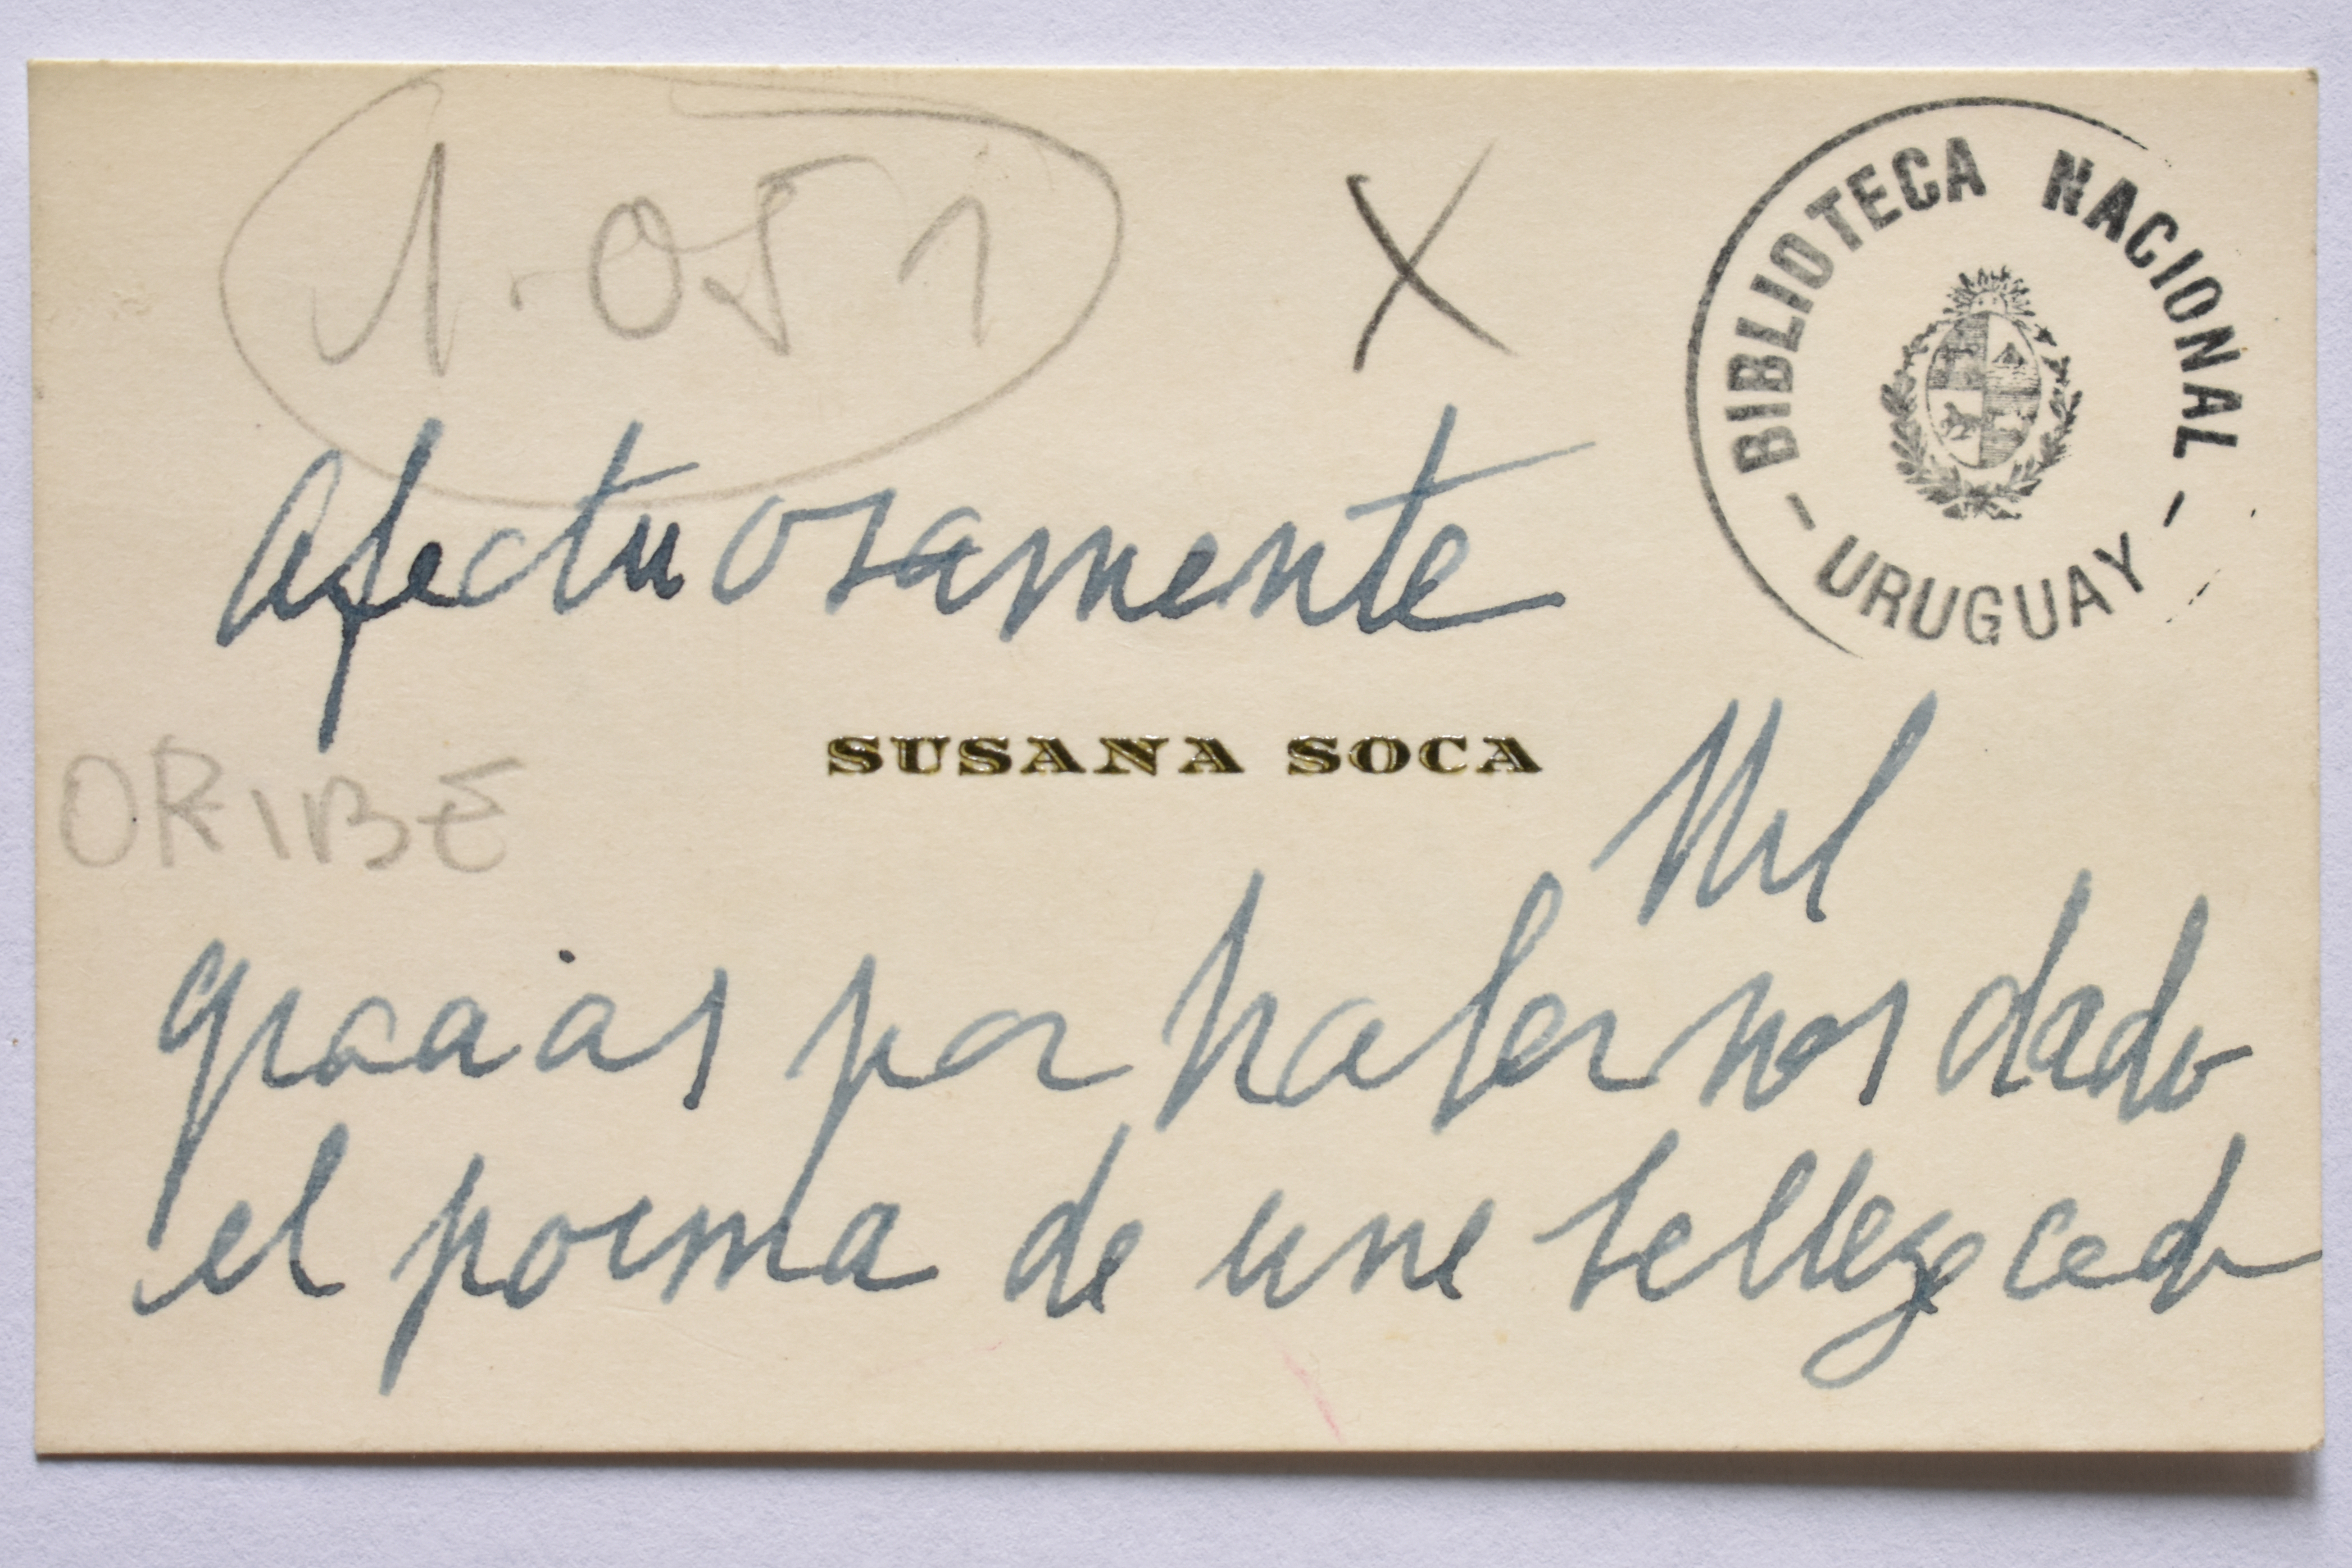 1.051
X
BIBLIOTECA NACIONAL
- URUGUAY -
Afectuosamente
SUSANA SOCA
ORIBE
Mil
gracias por habernos dado
el poema de una belleza cada